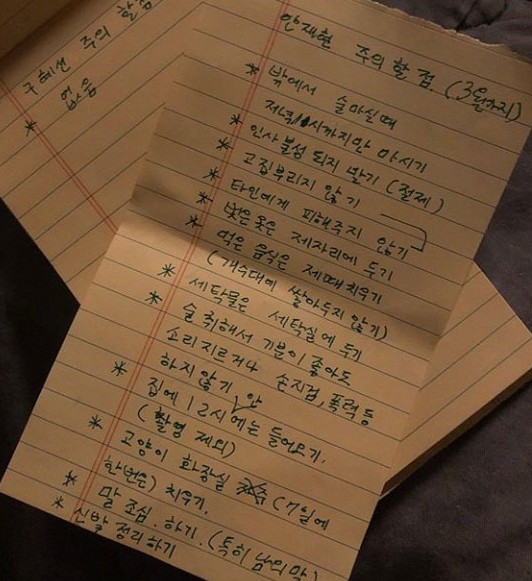 구혜선 주의 할점
* 없음
안재현 주의할점 (3일까지)
* 밖에서 술마실때
저녁 11시까지만 마시기
* 인사불성 되지 말기 (절제)
* 고집부리지 않기
* 타인에게 피해주지 않기
* 벗은 옷은 제자리에 두기
먹은 음식은 제때 치우기
(개수대에 쌓아두지 않기)
* 세탁물은 세탁실에 두기
* 술 취해서 기분이 좋아도
소리지르거나 손찌검, 폭력 등
하지않기
* 집에 12시 안에는 들어오기.
(촬영 제외)
* 고양이 화장실 (7일에
한번은) 치우기.
* 말 조심 . 하기. (특히 남의 말)
* 신발 정리하기